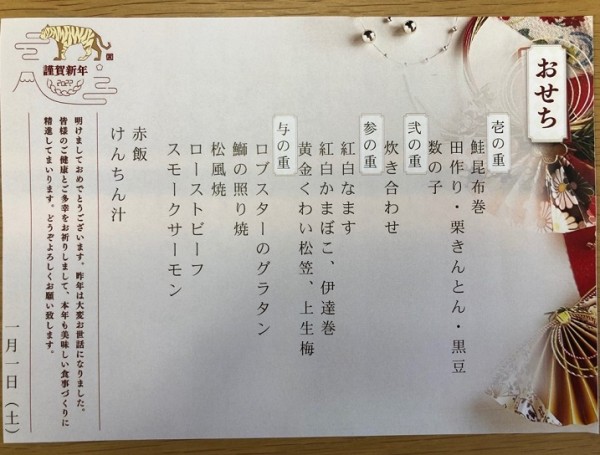 おせち
壱の重
鮭昆布巻
田作り・栗きんとん・黒豆
数の子
弐の重
炊き合わせ
参の重
紅白なます
紅白かまぼこ、伊達巻
黄金くわい松笠、上生梅
与の重
ロブスターのグラタン
鰤の照り焼
松風焼
ローストビーフ
スモークサーモン
赤飯
けんちん汁
謹賀新年
2022
明けましておめでとうございます。昨年は大変お世話になりました。
皆様のご健康とご多幸をお祈りしまして、本年も美味しい食事づくりに
精進してまいります。どうぞよろしくお願い致します。
一月一日（土）